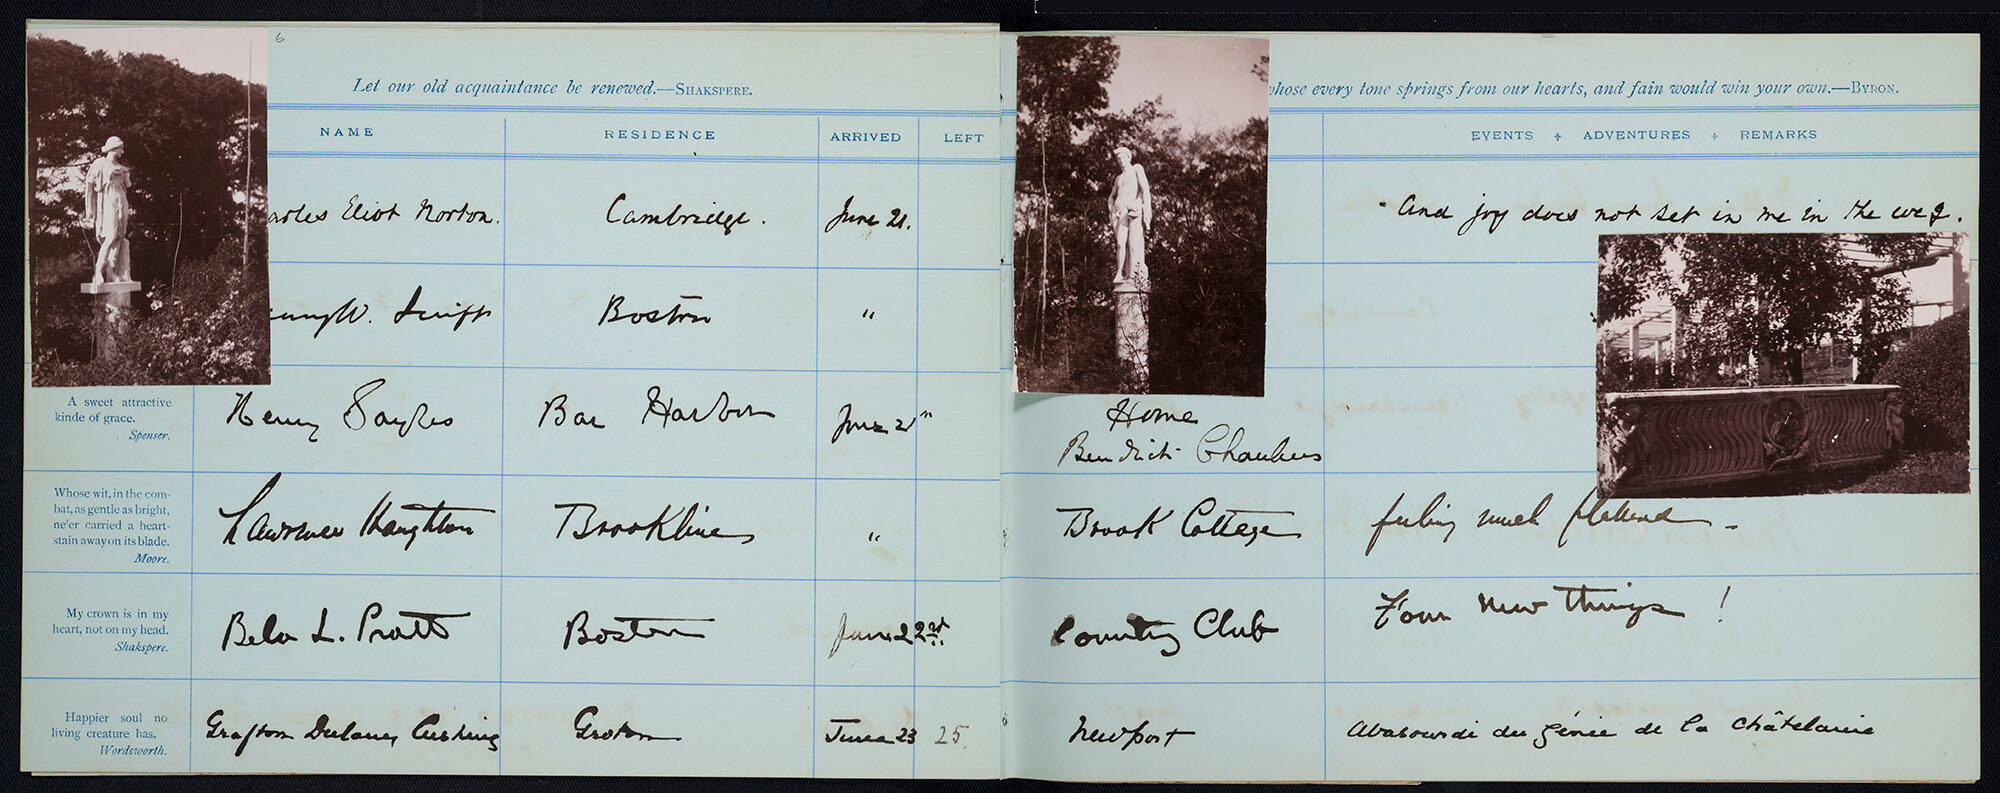 6
Let our old acquaintance be renewed.—SHAKSPERE.
whose every tone springs from our hearts, and fain would win your own.—BYRON.
NAME RESIDENCE ARRIVED LEFT
EVENTS + ADVENTURES + REMARKS
arles Eliot Norton. Cambridge. June 21.
"And joy does not set in me in the
W. Swift Boston "
A sweet attractive
kinde of grace.
Spenser.
Henry Sayles Bar Harbor June 21"
Home
Benedict Chambers
Whose wit, in the com-
bat, as gentle as bright,
ne'er carried a heart-
stain away on its blade.
Moore.
Lawrence Haughton Brookline "
Brook Cottage feeling much flattered –
My crown is in my
heart, not on my head.
Shakspere.
Bela L. Pratt Boston June 22nd
Country Club Four new things!
Happier soul no
living creature has.
Wordsworth.
Grafton Dulany Cushing Groton June 23 25.
Newport abasourdi du génie de la châtelaine